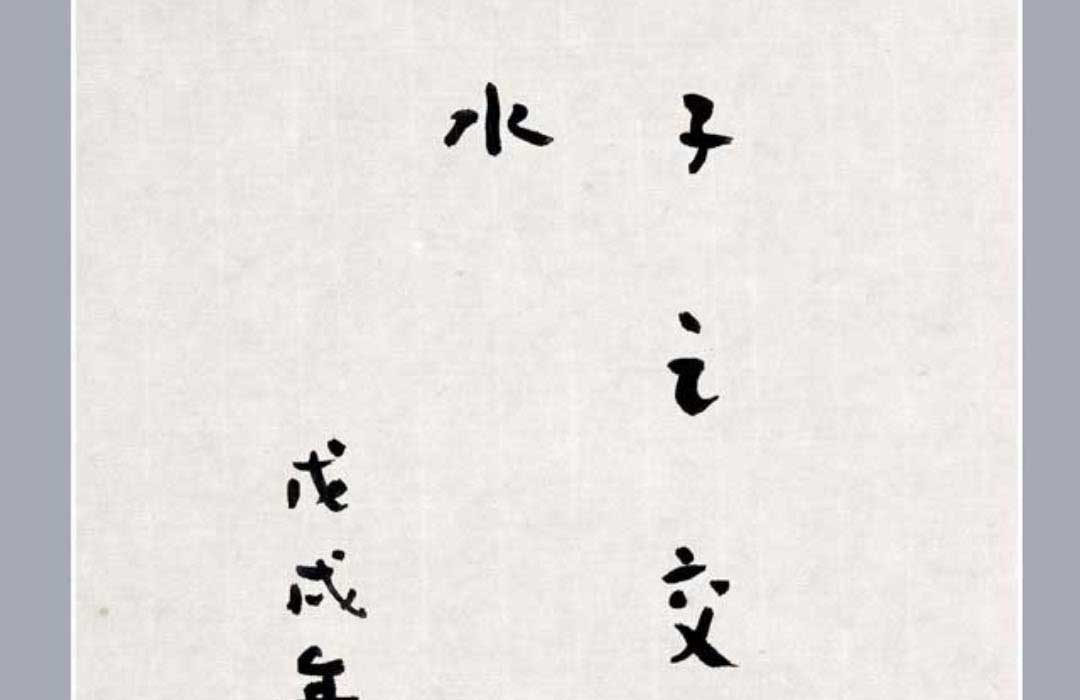 子之交
水
戊戌年